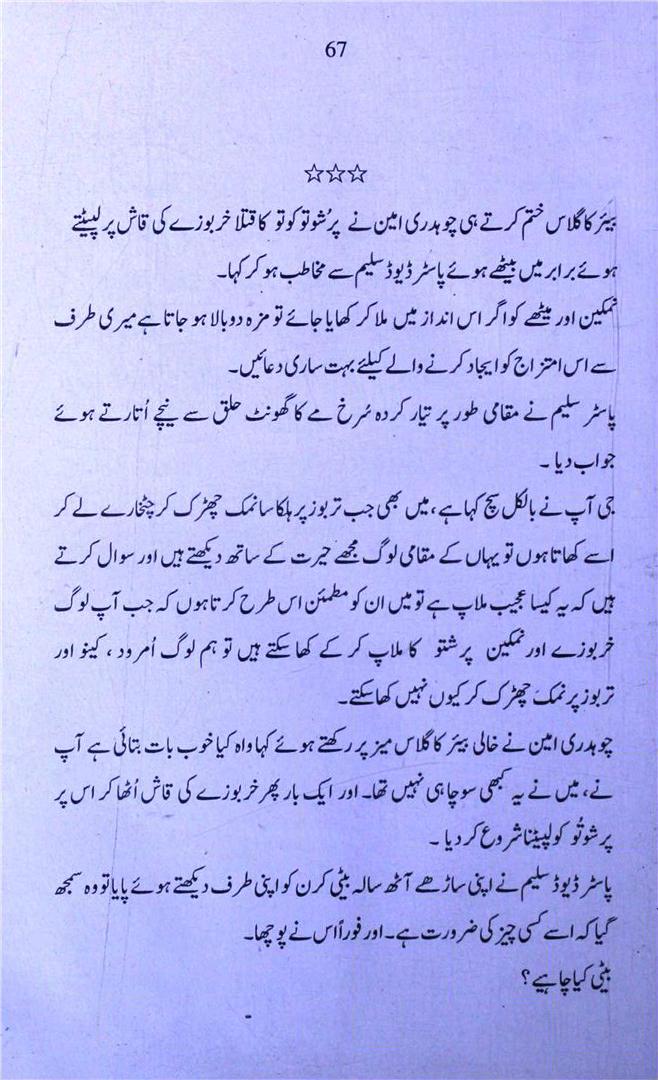 67
☆☆☆
بیئر کا گلاس ختم کرتے ہی چوہدری امین نے پرُشوتو کوتو کا قتلا خربوزے کی قاش پر لپیٹتے
ہوئے برابر میں بیٹھے ہوئے پاسٹر ڈیوڈ سلیم سے مخاطب ہو کر کہا۔
نمکین اور میٹھے کو اگر اس انداز میں ملا کر کھایا جائے تو مزہ دوبالا ہو جاتا ہے میری طرف
سے اس امتزاج کو ایجاد کرنے والے کیلئے بہت ساری دعائیں۔
پاسٹر سلیم نے مقامی طور پر تیار کردہ سُرخ مے کا گھونٹ حلق سے نیچے اُتارتے ہوئے
جواب دیا ۔
جی آپ نے بالکل سچ کہا ہے، میں بھی جب تربوز پر ہلکا سا نمک چھڑک کر چٹخارے لے کر
اسے کھاتا ہوں تو یہاں کے مقامی لوگ مجھے حیرت کے ساتھ دیکھتے ہیں اور سوال کرتے
ہیں کہ یہ کیسا عجیب ملاپ ہے تو میں ان کو مطمئن اس طرح کرتا ہوں کہ جب آپ لوگ
خربوزے اور نمکین پرشتو کا ملاپ کر کے کھا سکتے ہیں تو ہم لوگ اُمرود ، کینو اور
تربوز پر نمک چھڑک کر کیوں نہیں کھا سکتے۔
چوہدری امین نے خالی بیئر کا گلاس میز پر رکھتے ہوئے کہا واہ کیا خوب بات بتائی ہے آپ
نے، میں نے یہ کبھی سوچا ہی نہیں تھا۔ اور ایک بار پھر خربوزے کی قاش اُٹھا کر اس پر
پرشوتُو کو لپیٹنا شروع کر دیا ۔
پاسٹر ڈیوڈ سلیم نے اپنی ساڑھے آٹھ سالہ بیٹی کرن کو اپنی طرف دیکھتے ہوئے پایا تو وہ سمجھ
گیا کہ اسے کسی چیز کی ضرورت ہے۔ اور فوراً اس نے پوچھا۔
بیٹی کیا چاہیے ؟